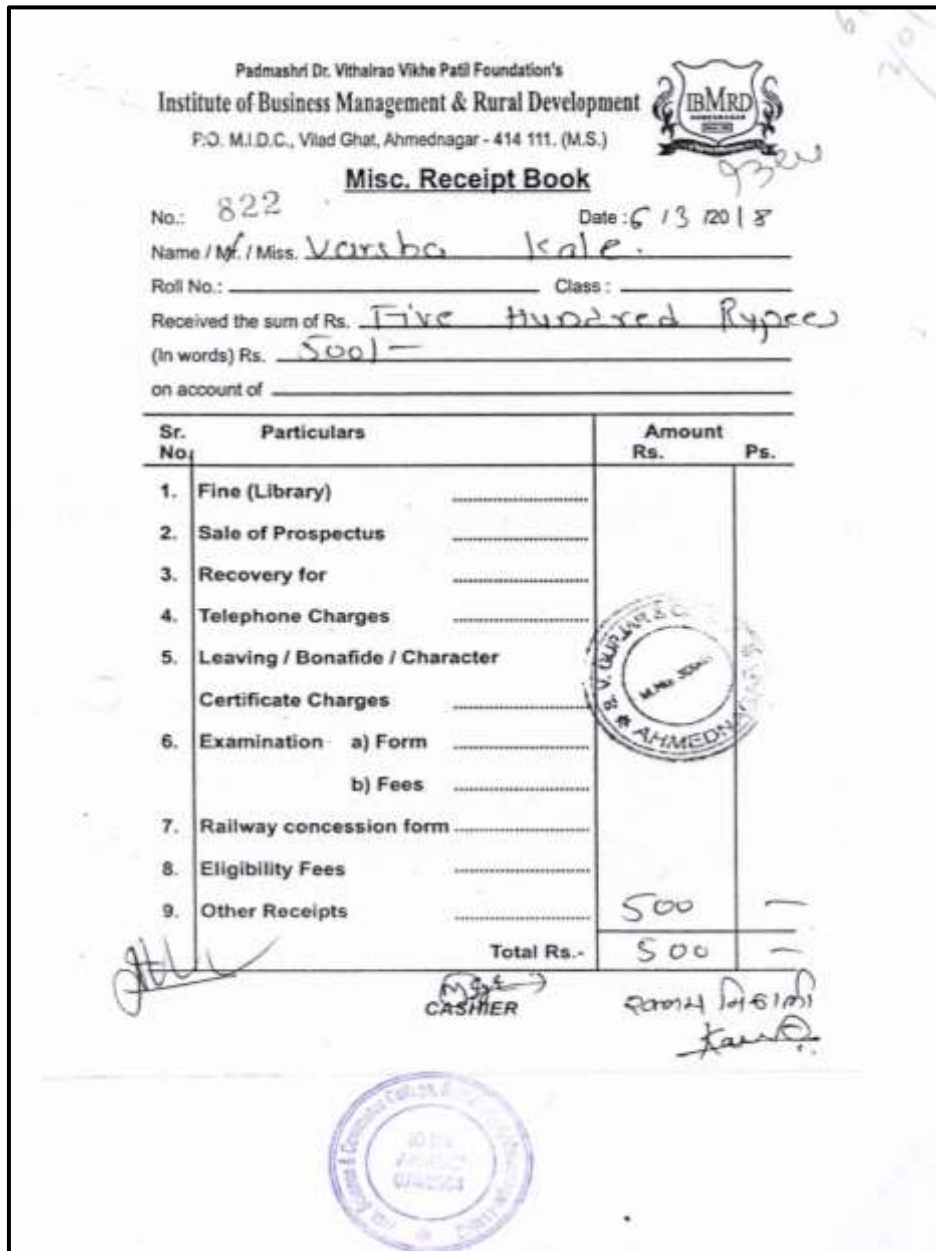 Padmashri Dr. Vithalrao Vikhe Patil Foundation's
Institute of Business Management & Rural Development
IBMRD
P.O. M.I.D.C., Vilad Ghat, Ahmednagar - 414 111. (M.S.)
Misc. Receipt Book
No.: 822 Date : 6 / 3 /2018
Name / Mr. / Miss. Varsha Kale.
Roll No.: Class :
Received the sum of Rs. Five Hundred Rupees
(In words) Rs. 500/-
on account of
Sr. No. Particulars Amount Rs. Ps.
1. Fine (Library)
2. Sale of Prospectus
3. Recovery for
4. Telephone Charges
5. Leaving / Bonafide / Character
Certificate Charges
6. Examination a) Form
b) Fees
7. Railway concession form
8. Eligibility Fees
9. Other Receipts 500 —
Total Rs.- 500 —
CASHIER
AHMEDNAGAR